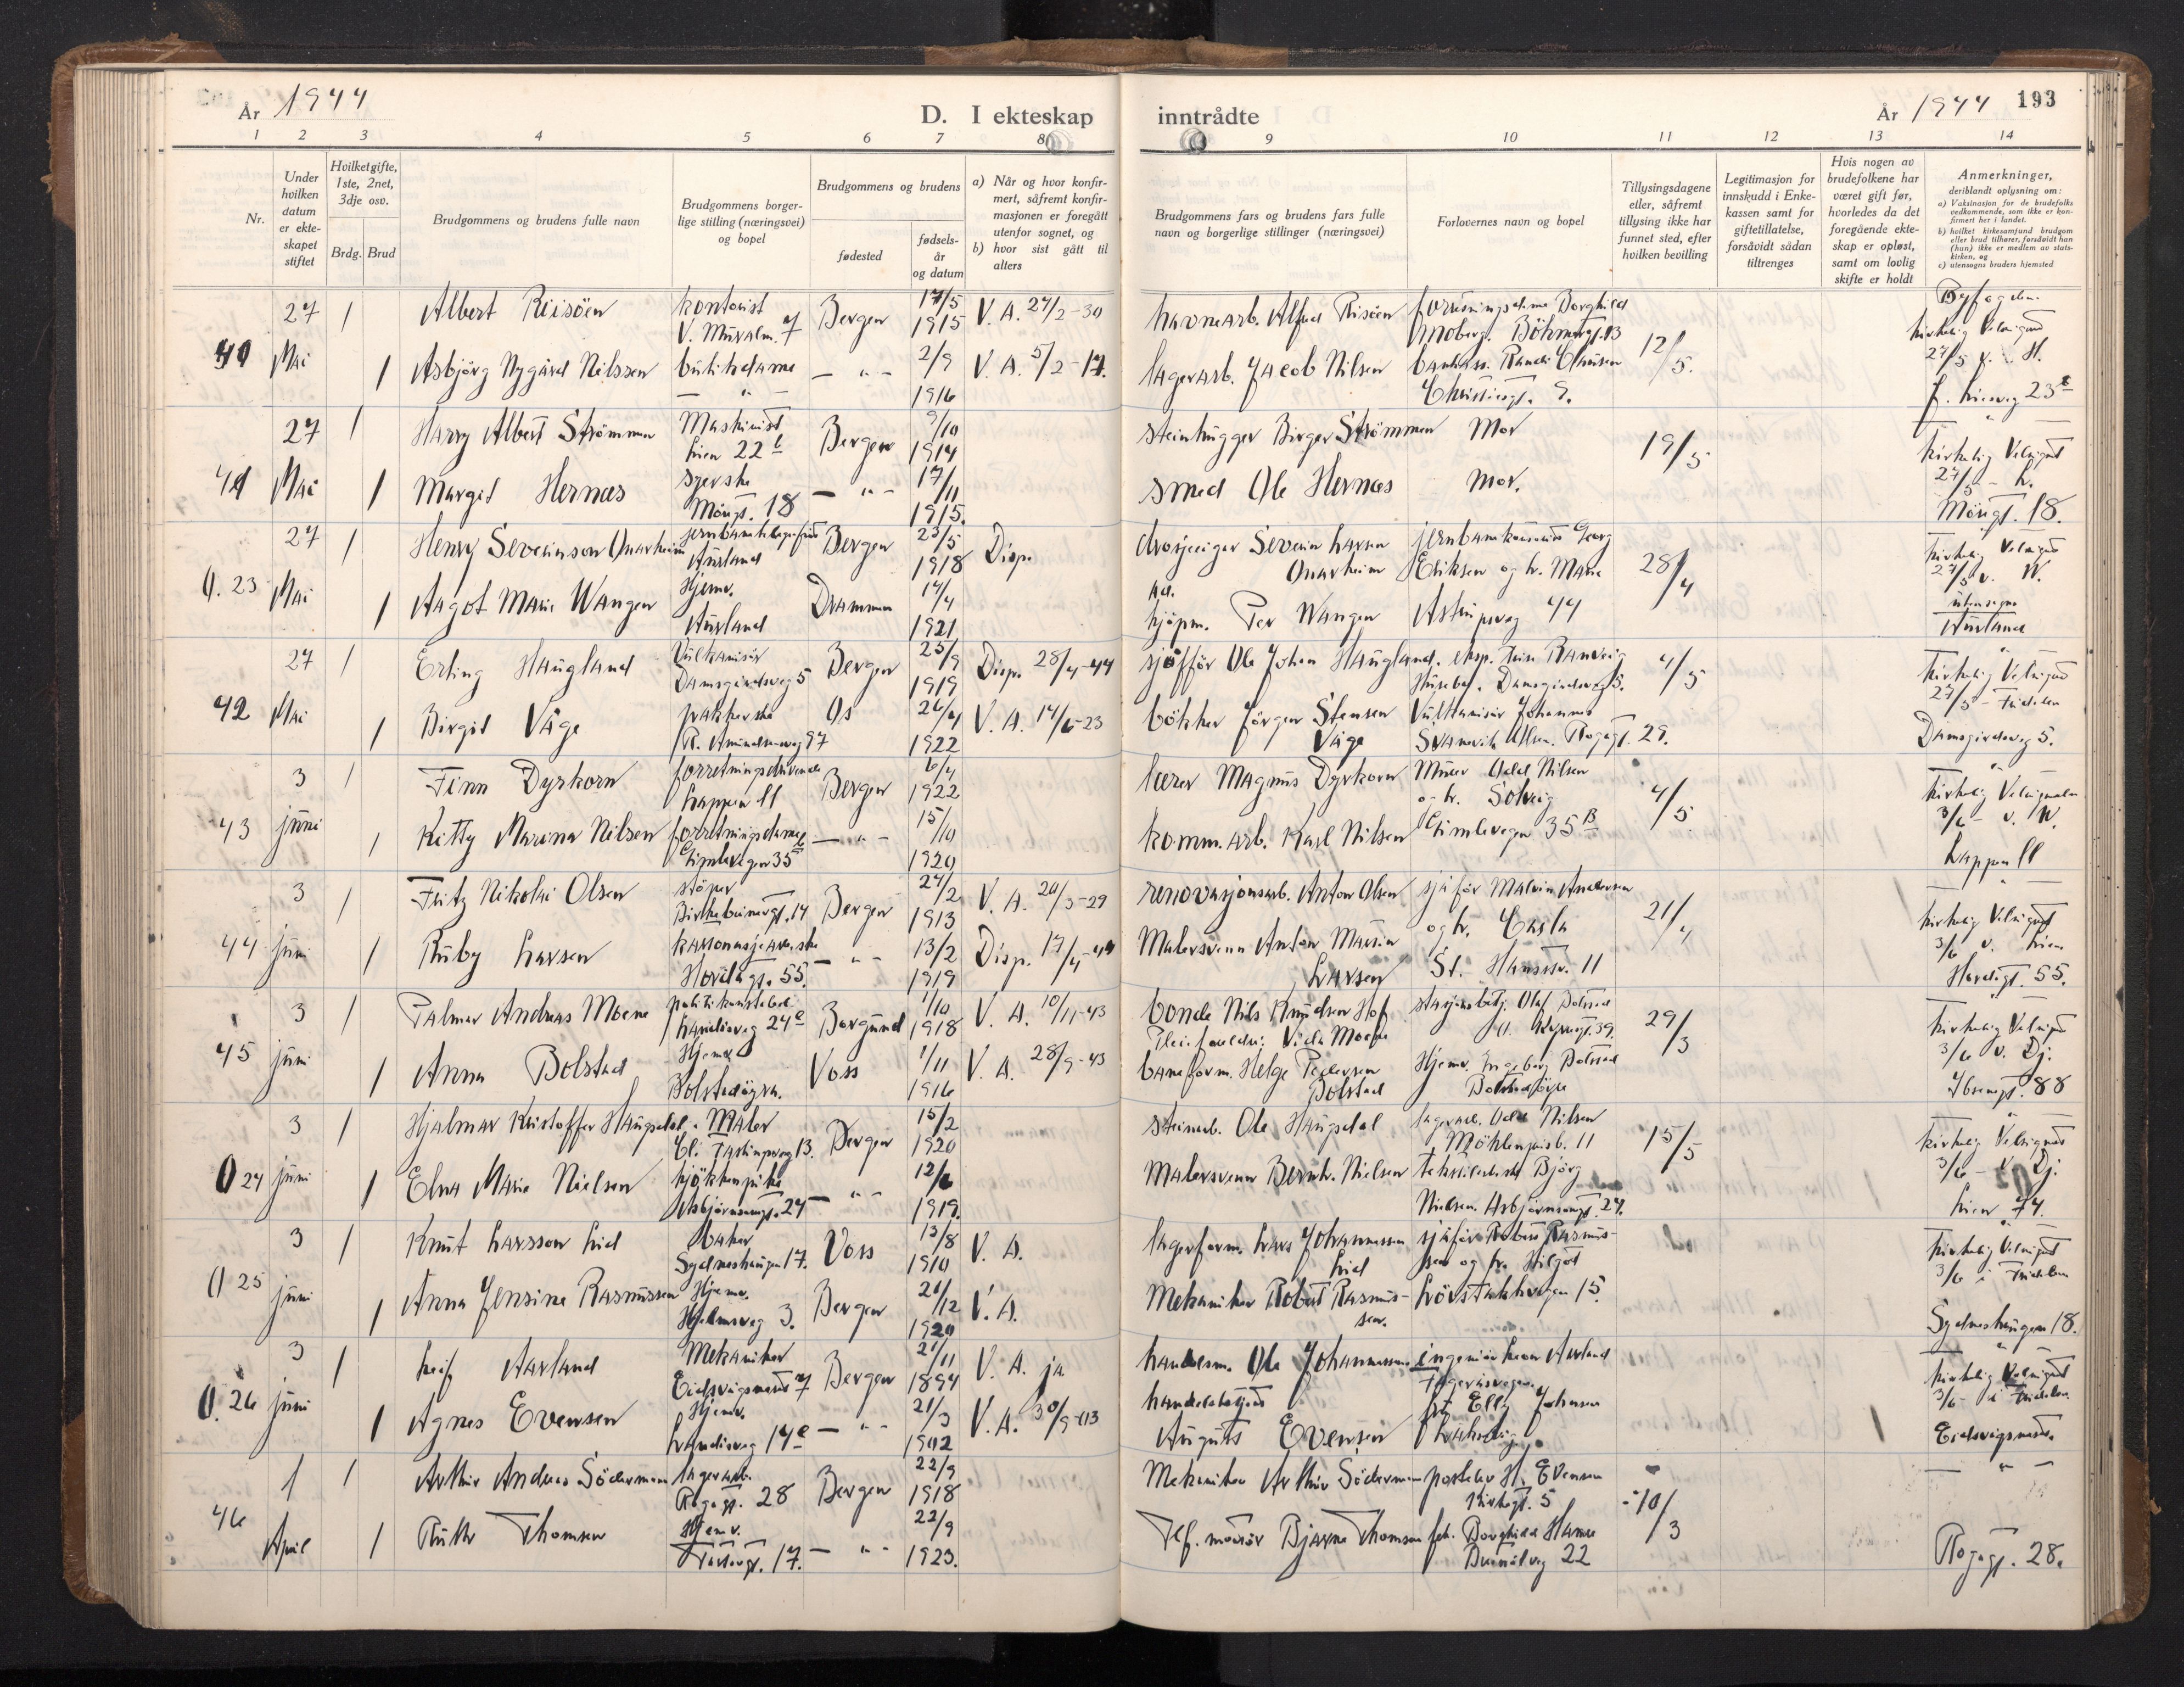 År 1944
D. I ekteskap inntrådte
År 1944 193
1 2 3 4 5 6 7 8 9 10 11 12 13 14
Nr.
Under hvilken datum er ekteskapet stiftet
Hvilket gifte, 1ste, 2net, 3dje osv.
Brdg. Brud
Brudgommens og brudens fulle navn
Brudgommens borgerlige stilling (næringsvei) og bopel
Brudgommens og brudens
fødested
fødselsår og datum
a) Når og hvor konfirmert, såfremt konfirmasjonen er foregått utenfor sognet, og
b) hvor sist gått til alters
Brudgommens fars og brudens fars fulle navn og borgerlige stillinger (næringsvei)
Forlovernes navn og bopel
Tillysingsdagene eller, såfremt tillysing ikke har funnet sted, efter hvilken bevilling
Legitimasjon for innskudd i Enkekassen samt for giftetillatelse, forsåvidt sådan tiltrenges
Hvis nogen av brudefolkene har været gift før, hvorledes da det foregående ekteskap er opløst, samt om lovlig skifte er holdt
Anmerkninger, deriblandt oplysning om:
a) Vaksinasjon for de brudefolks vedkommende, som ikke er konfirmert her i landet.
b) hvilket kirkesamfund brudgom eller brud tilhører, forsåvidt han (hun) ikke er medlem av statskirken, og
c) utensogns bruders hjemsted
40 27 Mai 1 Albert Riisöen kontorist V. Muralm. 7 Bergen 17/5 1915 V. A. 27/2-30 havnearb. Alfred Riisöen
1 Asbjörg Nygård Nilssen butikdame - " - 2/9 1916 V. A. 5/2- lagerarb. Jacob Nilsen Christiesgt. 9. 12/5. 27/5
41 27 Mai 1 Harry Albert Strömmen Maskinist Lien 22 b Bergen 9/10 1914 steinhugger Birger Strömmen Mor 19/5 kirkelig Velsignet 27/5
1 Margit Hernæs syerske Möregt. 18 - " - 17/11 1915. smed Ole Hernæs Mor. Möregt. 18.
U. 23 27 Mai 1 Henry Severinson Qvarheim Aurland Bergen 23/5 1918 Disp. drosjeeiger Severin Larsen Qvarheim Georg Eriksen og fr. Marie 28/4 kirkelig Velsignet 27/5
1 Aagot Marie Wangen Hjemv. Aurland Drammen 14/4 1921 kjöpm. Per Wangen Astrupsveg 44 utensogns Aurland
42 27 Mai 1 Erling Haugland Vulkanisör Damsgårdsveg 5 Bergen 25/9 1919 Disp. 28/4-44 sjåfför Ole Johan Haugland. Damsgårdsveg 5. 4/5 kirkelig Velsignet 27/5 - Fridalen
1 Birgit Våge pakkerske R. Amundsensveg 97 Os 26/4 1922 V. A. 14/6-23 bökker Jörgen Stensen Våge Vulkanisör Johannes Rogagt. 29. Damsgårdsveg 5.
43 3 juni 1 Finn Dyrkorn forretningsdrivende Lappen 11 Bergen 6/4 1922 lærer Magnus Dyrkorn Murer Odd Nilsen og fr. Solveig 4/5 3/6
1 Kitty Marina Nilsen forretningsdame Gimlevegen 35 b - " - 15/10 1920 komm. arb. Karl Nilsen Gimlevegen 35 B Lappen 11
44 3 juni 1 Fritz Nikolai Olsen stöper Birkebeinergt. 14 Bergen 24/2 1913 V. A. 20/3-29 renovasjonsarb. Anton Olsen sjåför Malvin Andersen og fr. Carla 21/4 kirkelig Velsignet 3/6
1 Ruby Larsen kartonasjearb.ske Hordagt. 55. - " - 13/2 1919 Disp. 17/4-44 Malersvenn Anton Marius Larsen St. Hansstr. 11 Hordagt. 55.
45 3 juni 1 Palmar Andreas Moene politikonstabel Landåsveg 24 e Borgund 1/10 1918 V. A. 10/11-43 bonde Nils Knudsen Hof Pleieforeldr: Moene stasjonsbetj. Olaf Bolstad 29/3 kirkelig Velsignet 3/6
1 Anna Bolstad Hjemv. Bolstadöyra. Voss 1/11 1916 V. A. 28/9-43 baneform. Helge Pedersen Bolstad Hjemv. Ingeborg Bolstad Bolstadöyra Ibsensgt. 88
U 24 3 juni 1 Hjalmar Kristoffer Haugsdal. Maler Bergen 15/2 1920 steinarb. Ole Haugsdal lagerarb. Odd Nilsen Möhlenprisb. 11 15/5 kirkelig Velsignet 3/6
1 Elna Marie Nielsen kjökkenpike Asbjörnsensgt. 24 - " - 12/6 1919. Malersvenn Bernh. Nielsen Björg Nielsen. Asbjörnsensgt. 24. Lien 74.
U 25 3 juni 1 Knut Larsson Lid baker Sydneshaugen 17. Voss 13/8 1910 V. A. lagerform. Lars Johannessen Lid sjåför Robert Rasmussen og fr. kirkelig Velsignet 3/6 i Fridalen
1 Anna Jensine Rasmussen Hjemv. 3. Bergen 21/12 1920 V. A. Mekaniker Robert Rasmussen. Lövstakkvegen 15. Sydneshaugen 18.
U. 26 3 juni 1 Leif Aarland Mekaniker Eidsvågsneset 7 Bergen 21/11 1894 V. A. ja handelsm. Ole Johannessen ingeniör Aarland kirkelig Velsignet 3/6 i Fridalen
1 Agnes Evensen Hjemv. Landåsveg 14 e - " - 21/3 1902 V. A. 30/9- handelsbetjent August Evensen frk Elly Johnsen Eidsvågsneset.
46 1 April 1 Arthur Andreas Södermann lagerarb. Rogagt. 28 Bergen 22/9 1918 Mekaniker Arthur Södermann H. Evensen Kirkegt. 5 10/3 - " -
1 Ruth Thomsen Hjemv. 17. - " - 22/9 1923. Tlf. montör Bjarne Thomsen frk. Borghild Hamre 22 Rogagt. 28.